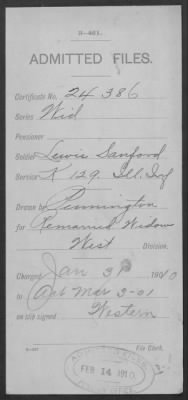 3-401.
ADMITTED FILES.
Certificate No. 24386
Series Wid
Pensioner
Soldier Lewis Sanford
Service K 129. Ill. Inf
Drawn by Pennington
for Remarried Widow
West Division.
Charged Jan 31 1910
to Act Mar 3-01
on slip signed Western
File Clerk.
FEB 14 1910